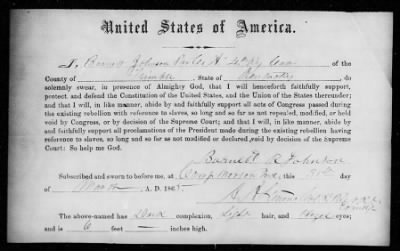 United States of America.
I, Barnett Johnson of the
County of , State of Kentucky, do
solemnly swear, in presence of Almighty God, that I will henceforth faithfully support,
protect and defend the Constitution of the United States, and the Union of the States thereunder;
and that I will, in like manner, abide by and faithfully support all acts of Congress passed during
the existing rebellion with reference to slaves, so long and so far as not repealed, modified, or held
void by Congress, or by decision of the Supreme Court; and that I will, in like manner, abide by
and faithfully support all proclamations of the President made during the existing rebellion having
reference to slaves, so long and so far as not modified or declared void by decision of the Supreme
Court: So help me God.
Barnett A Johnson
Subscribed and sworn to before me, at Camp Morton Ind, this
day of March, A. D. 186
The above-named has Dark complexion, Light hair, and Hazel eyes;
and is 6 feet — inches high.